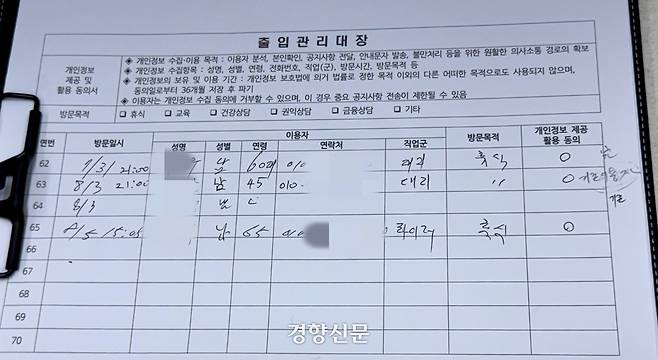 출입관리대장
개인정보
제공 및
활용 동의서
◆ 개인정보 수집·이용 목적 : 이용자 분석, 본인확인, 공지사항 전달, 안내문자 발송, 불만처리 등을 위한 원활한 의사소통 경로의 확보
◆ 개인정보 수집항목 : 성명, 성별, 연령, 전화번호, 직업(군), 방문시간, 방문목적 등
◆ 개인정보의 보유 및 이용 기간 : 개인정보 보호법에 의거 법률로 정한 목적 이외의 다른 어떠한 목적으로도 사용되지 않으며,
동의일로부터 36개월 저장 후 파기
◆ 이용자는 개인정보 수집 동의에 거부할 수 있으며, 이 경우 중요 공지사항 전송이 제한될 수 있음
방문목적 □ 휴식 □ 교육 □ 건강상담 □ 권익상담 □ 금융상담 □ 기타
연번 방문일시 이용자 방문목적 개인정보 제공
활용 동의
성명 성별 연령 연락처 직업군
62 7/3 21:00 남 60대 010 대리 휴식 O
63 8/3 21:00 남 45 010. 대리 〃 O
64 8/3
65 15:05 남 65 010 휴식 O
66
67
68
69
70
경향신문